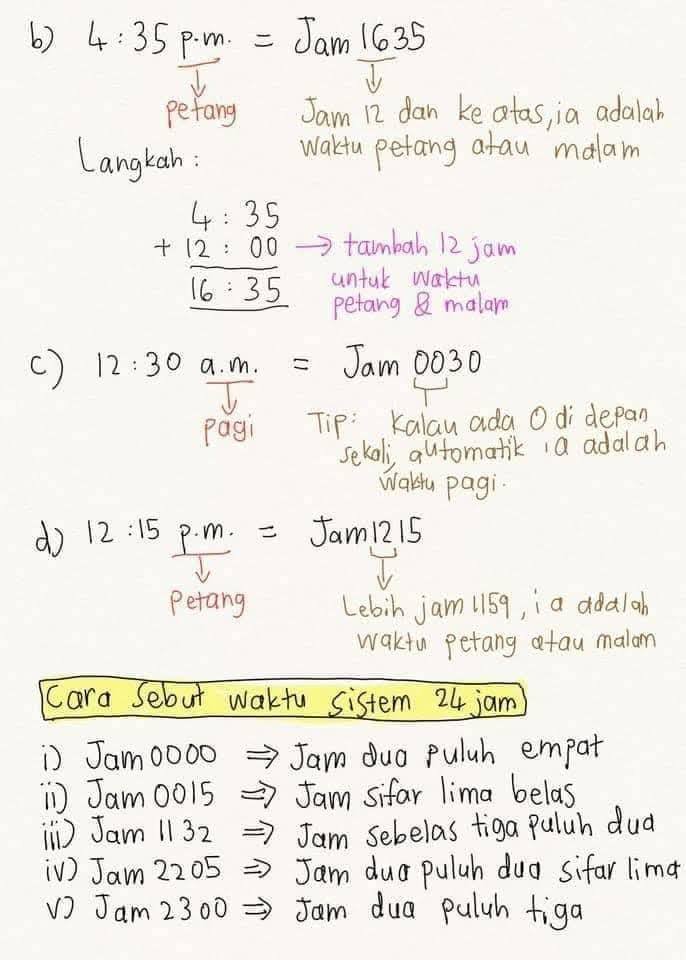 b) 4:35 p.m. = Jam 1635
petang
Jam 12 dan ke atas, ia adalah
waktu petang atau malam
Langkah :
4 : 35
+ 12 : 00 → tambah 12 jam
untuk waktu
petang & malam
16 : 35
c) 12:30 a.m. = Jam 0030
pagi
Tip: Kalau ada 0 di depan
sekali, automatik ia adalah
waktu pagi.
d) 12:15 p.m. = Jam 1215
Petang
Lebih jam 1159, ia adalah
waktu petang atau malam
Cara Sebut waktu sistem 24 jam
i) Jam 0000 ⇒ Jam dua puluh empat
ii) Jam 0015 ⇒ Jam sifar lima belas
iii) Jam 1132 ⇒ Jam sebelas tiga puluh dua
iv) Jam 2205 ⇒ Jam dua puluh dua sifar lima
v) Jam 2300 ⇒ Jam dua puluh tiga